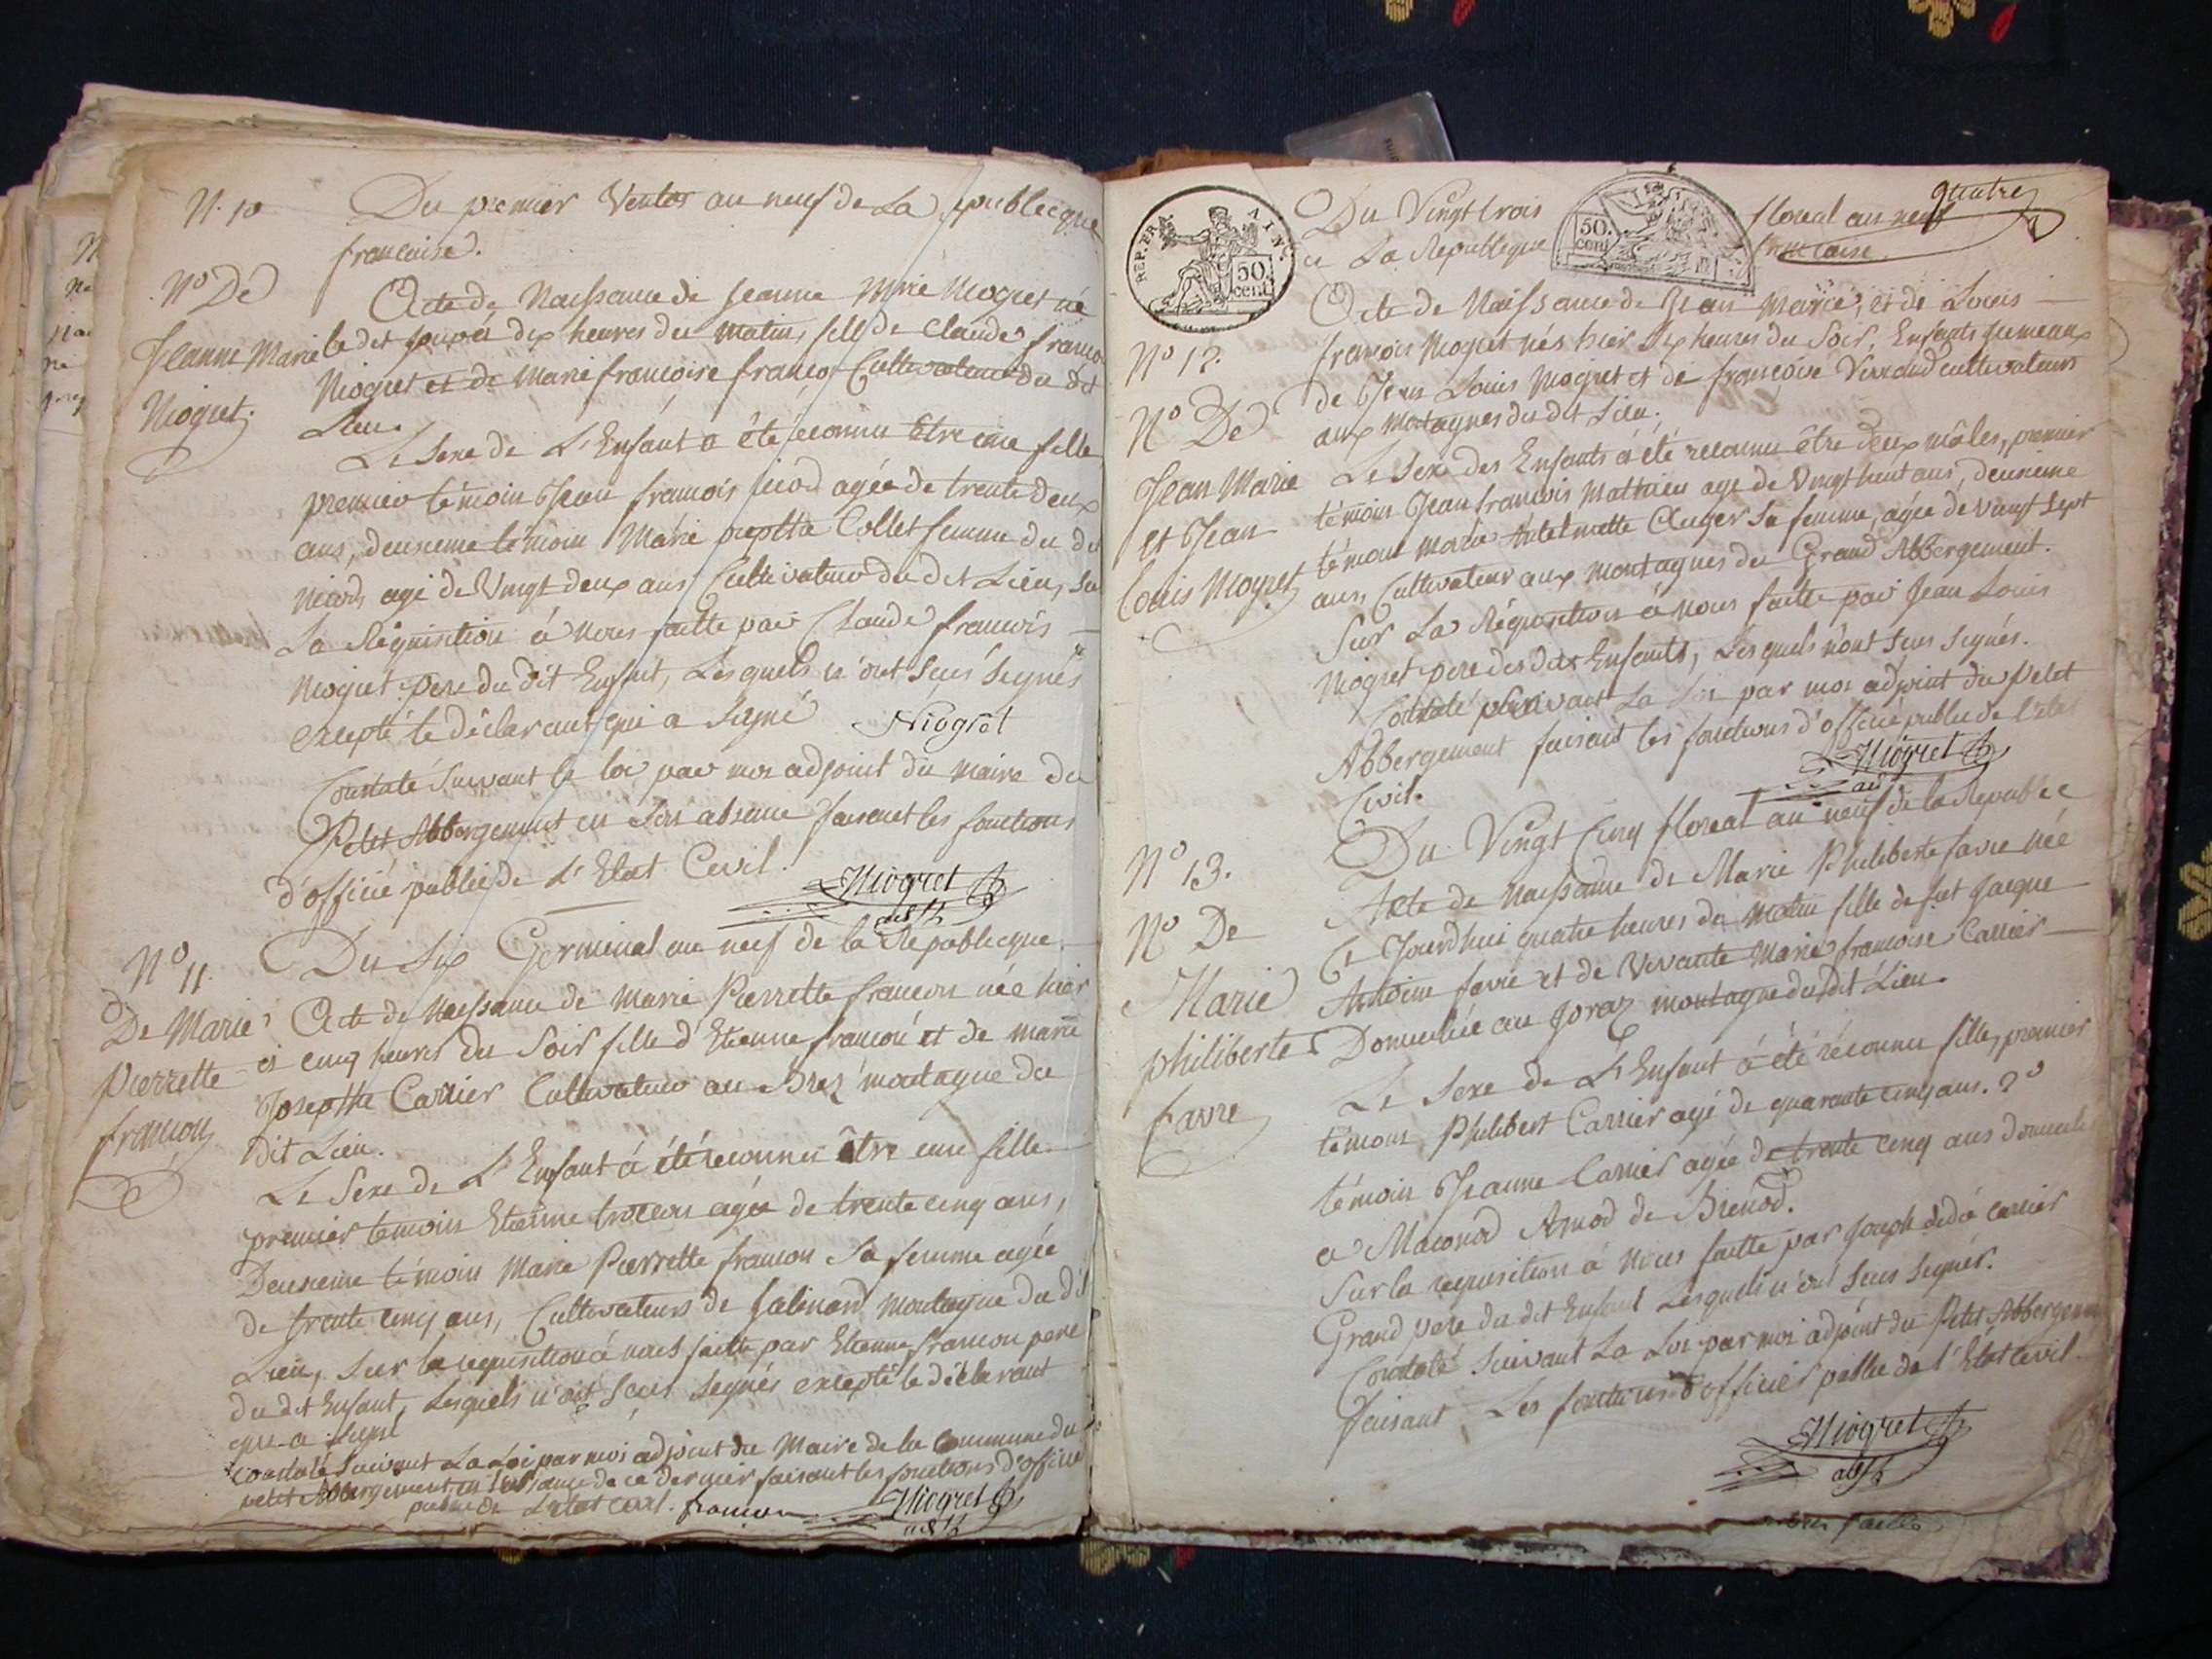 N. 10
Du premier Ventos an neuf de La Republicque
francaise.
No De
Jeanne Marie
Niogret.
Acte de Naissance de Jeanne Marie Niogret né
le dit jour à dix heures du matin, fille de Claude françois
Niogret et de Marie françoise françon Cultivateur du dit
Lieu.
Le Sexe de L'Enfant a été reconnu Etre une fille
premier témoin Jean francois niod agée de trente deux
ans, deuxieme témoin Marie josephte Collet femme du dit
niod, agé de Vingt deux ans Cultivateur du dit Lieu, Sur
La Réquisition à nous faitte par Claude francois
Niogret pere du dit Enfant, Lesquels n'ont Seus Signés
excepté le déclarant qui a Signé Niogret
Constaté Suivant la loi par moi adjoint du maire du
Petit Abbergement en Son absence faisant les fonctions
d'officié public de L'Etat Civil.
Niogret
adjt
No 11.
De Marie
Pierrette
francon
Du Six Germinal an neuf de la Republicque.
Acte de Naissance de Marie Pierrette francon née hier
à cinq heures du Soir fille d'Etienne francon et de marie
Josephte Carrier Cultivateur au Brez montagne du
dit Lieu.
Le Sexe de L'Enfant à été reconnu être une fille
premier temoin Etienne agée de trente cinq ans,
Deuxieme témoin Marie Pierrette francon Sa femme agée
de trente cinq ans, Cultivateurs de montagne du dit
Lieu, Sur la requisition à nous faitte par Etienne francon pere
du dit Enfant, Lesquels n'ont Seus Signés excepté le déclarant
qui a Signé
Constaté Suivant La Loi par moi adjoint du Maire de la Commune du
petit Abbergement en l'absance de ce dernier faisant les fonctions d'officié
public de L'etat civil. francon Niogret
adjt
quatre
REP. FRA.
50.
cent.
50.
cent.
Du Vingt trois floreal an neuf
de La Republique francaise.
No 12.
No De
Jean Marie
et Jean
Louis Niogret
Acte de Naissance de Jean Marie, et de Louis
francois Niogret nés hier Six heures du Soir, Enfants Jumeaux
de Jean Louis Niogret et de francoise Verraud cultivateurs
aux Montagnes du dit Lieu.
Le Sexe des Enfants à été reconnu être deux mâles, premier
témoin Jean francois Mathieu age de Vingt huit ans, deuxieme
témoin Marie Antelmette Auger Sa femme, agée de vingt Sept
ans, Cultivateur aux Montagnes du Grand Abbergement.
Sur La Réquisition à nous faitte par Jean Louis
Niogret pere des dits Enfants, Lesquels n'ont Seus Signés.
Constaté Suivant La Loi par moi adjoint du Petit
Abbergement faisant les fonctions d'officié public de l'etat
Civil.
Niogret
adj
No 13.
No De
Marie
philiberte
favre
Du Vingt Cinq floreal an neuf de la Republice
Acte de Naissance de Marie Philiberte favre née
Ce Jourdhui quatre heures du Matin fille de fut Jacque
Antoine favre et de Vivante Marie francoise Carrier
Domiciliée au Joraz montagne du dit Lieu.
Le Sexe de L'Enfant à été réconnu fille, premier
témoin Philibert Carrier agé de quarante cinq ans. 2o
témoin Jeanne Carrier agée de trente cinq ans domicilié
a Maconod Amod de Brenod.
Sur la requisition à Nous faitte par Joseph carrier
Grand pere du dit Enfant Lesquels n'ont Seus Signés.
Constaté Suivant La Loi par moi adjoint du Petit Abbergement
faisant Les fonctions d'officier public de l'Etat civil
Niogret
adjt